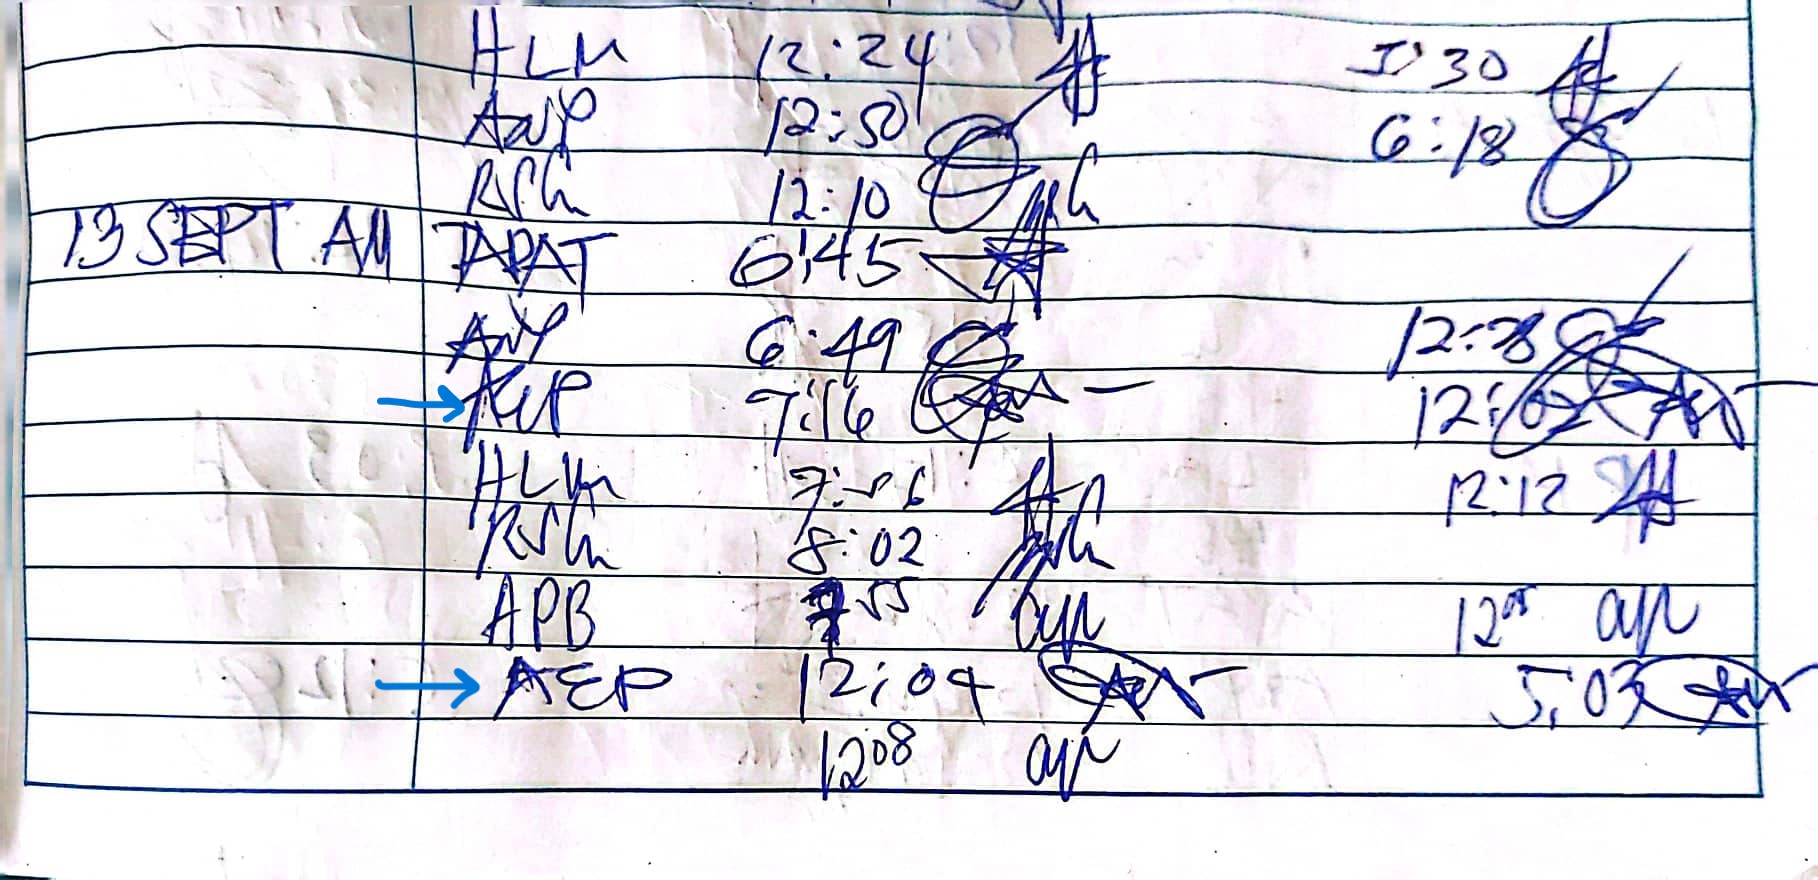 HLM 12:24 5:30
AWP 12:50 6:18
RSG 12:10
13 SEPT AM TAPAT 6:45
AWP 6:49 12:38
AEP 7:16 12:02
HLM 7:56 12:12
RSG 8:02
APB 7 55 12 05
AEP 12:04 5:03
12 08